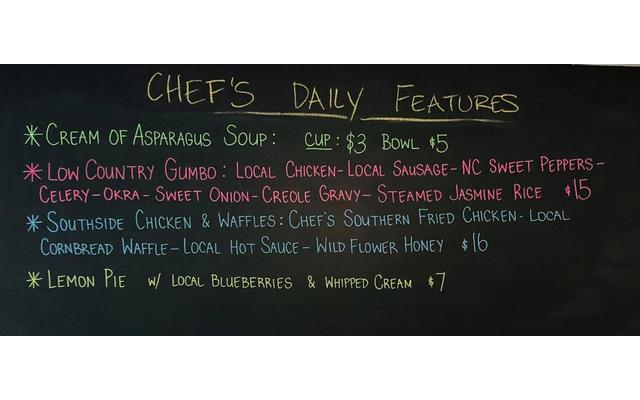 CHEF'S DAILY FEATURES
* CREAM OF ASPARAGUS SOUP: CUP: $3 BOWL $5
* LOW COUNTRY GUMBO: LOCAL CHICKEN-LOCAL SAUSAGE-NC SWEET PEPPERS-
CELERY-OKRA-SWEET ONION-CREOLE GRAVY-STEAMED JASMINE RICE $15
* SOUTHSIDE CHICKEN & WAFFLES: CHEF'S SOUTHERN FRIED CHICKEN-LOCAL
CORNBREAD WAFFLE-LOCAL HOT SAUCE-WILD FLOWER HONEY $16
* LEMON PIE W/ LOCAL BLUEBERRIES & WHIPPED CREAM $7